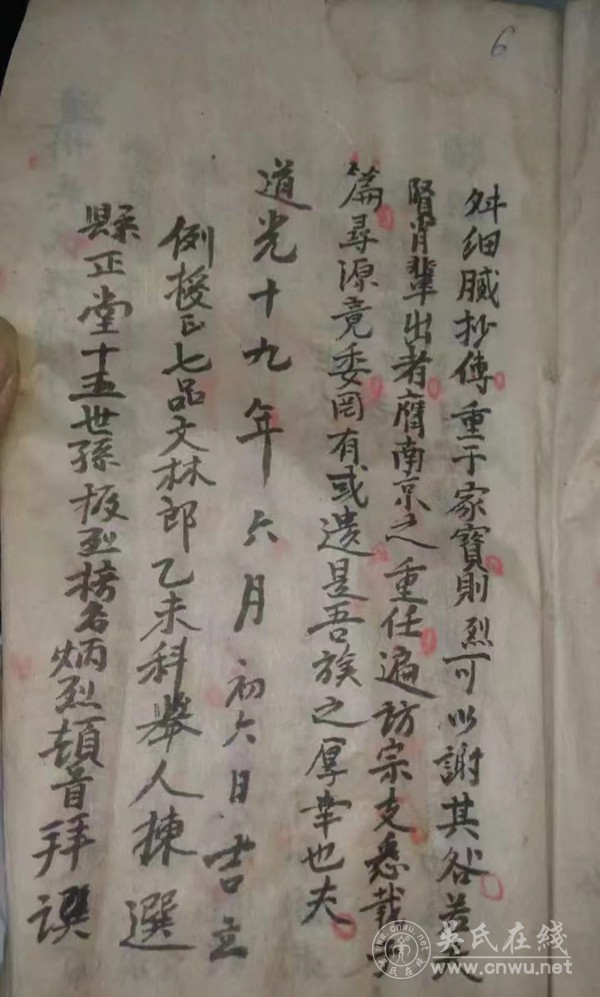 6
舛细臓抄傳重于家寶則烈可以謝其咎若夫
賢肖輩出者膺南京之重任遍訪宗支悉載
篇尋源竟委罔有或遺是吾族之厚幸也夫
道光十九年六月初六日吉立
例授正七品文林郎乙未科舉人揀選
縣正堂十五世孫振烈榜名炳烈頓首拜譔
吳氏在线
www.cnwu.net